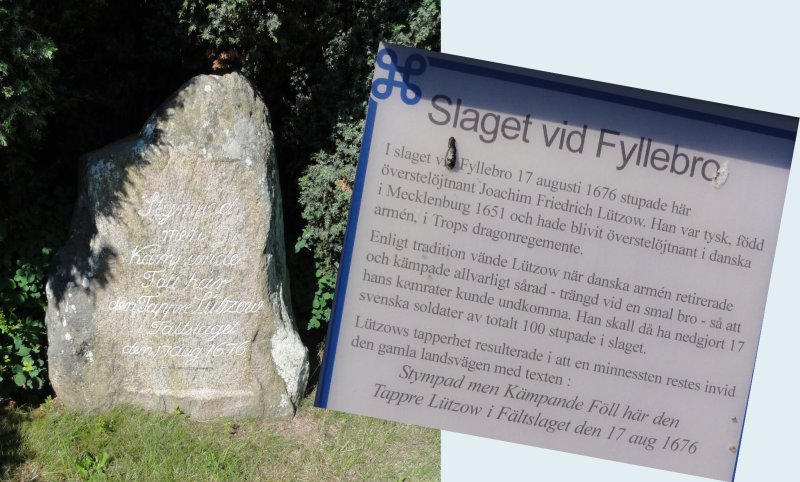 Stympad
men
Kämpande
Föll här
den Tappre Lützow
i Fältslaget
den 17 aug 1676
Slaget vid Fyllebro
I slaget vid Fyllebro 17 augusti 1676 stupade här
överstelöjtnant Joachim Friedrich Lützow. Han var tysk, född
i Mecklenburg 1651 och hade blivit överstelöjtnant i danska
armén, i Trops dragonregemente.
Enligt tradition vände Lützow när danska armén retirerade
och kämpade allvarligt sårad - trängd vid en smal bro - så att
hans kamrater kunde undkomma. Han skall då ha nedgjort 17
svenska soldater av totalt 100 stupade i slaget.
Lützows tapperhet resulterade i att en minnessten restes invid
den gamla landsvägen med texten :
Stympad men Kämpande Föll här den
Tappre Lützow i Fältslaget den 17 aug 1676